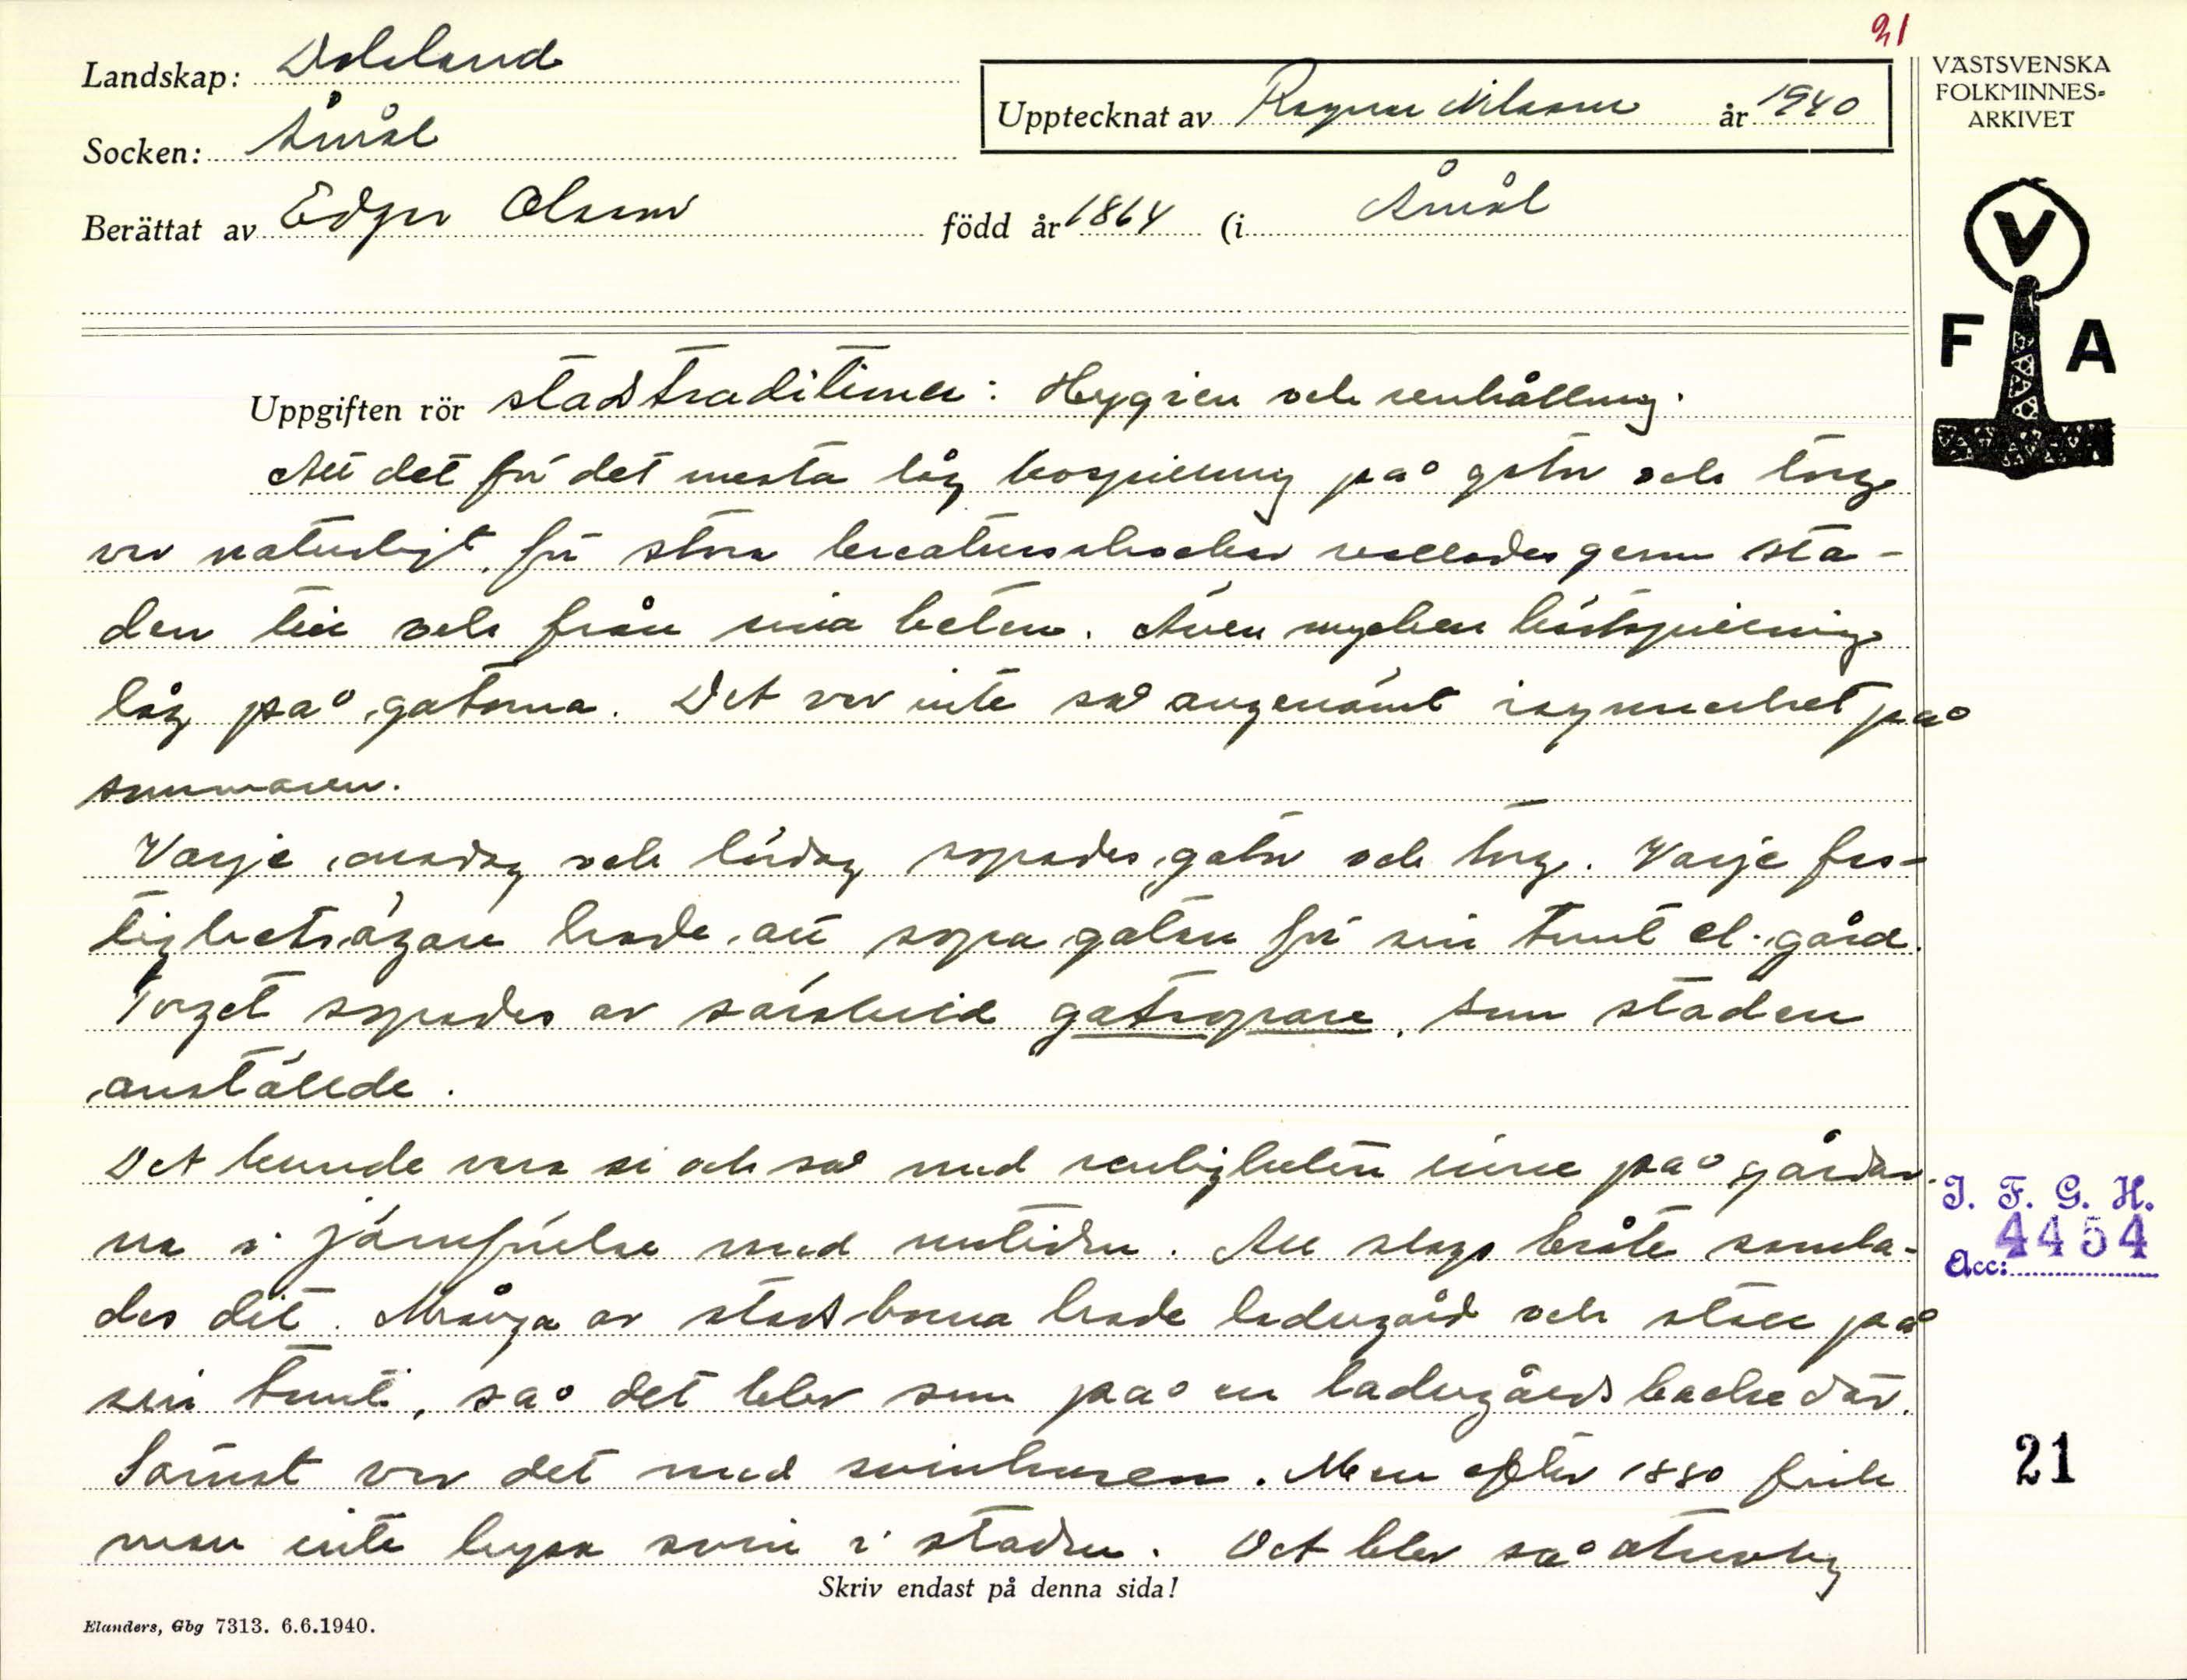 21
Landskap: Dalsland
Socken: Åmål
Upptecknat av Ragnar Nilsson år 1940
Berättat av Edgar Olsson född år 1864 (i Åmål
VÄSTSVENSKA
FOLKMINNES-
ARKIVET
V
F A
Uppgiften rör stadstraditioner: Hygien och renhållning.
Att det för det mesta låg kospillning på gator och torg
var naturligt, för stora kreatursskockar vallades genom sta-
den till och från sina beten. Även mycken hästspillning
låg på gatorna. Det var inte så angenämt isynnerhet på
sommaren.
Varje onsdag och lördag sopades gator och torg. Varje fas-
tighetsägare hade att sopa gatan för sin tomt el. gård.
Torget sopades av särskild gatsopare, som staden
anställde.
Det kunde vara si och så med renligheten inne på gårdar-
na i jämförelse med nutiden. All slags bråte samla-
des dit. Många av stadsborna hade ladugård och stall på
sin tomt, så det blev som på en ladugårdsbacke där.
Sämst var det med svinhusen. Men efter 1880 fick
man inte hysa svin i staden. Det blev så otrevlig
Skriv endast på denna sida!
Elanders, Gbg 7313. 6.6.1940.
I. F. G. H.
Acc: 4454
21